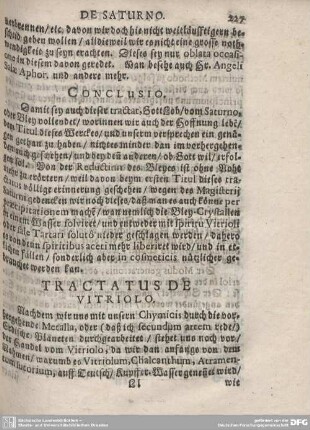 DE SATURNO. 227
verbrennen/etc. davon wir doch hie nicht weitläufftigern be=
scheid geben wollen / alldieweil wir es nicht eine grosse noth=
wendigkeit zu seyn erachten. Dieses sey nur oblata occasi=
one in diesem davon geredet. Man besehe auch Hr. Angeli
Salæ Aphor. und andere mehr.
CONCLUSIO.
Damit sey auch dieser tractat, Gottlob/ vom Saturno,
oder Bley vollendet/ worinnen wir auch der Hoffnung lebẽ/
dem Titul dieses Werckes/ und unserm versprechen ein genü=
gen gethan zu haben/ nichtes minder dan im vorhergehen=
den auch geschehen/ und bey den anderen/ ob Gott wil/ erfol=
gen soll. Von der Reductiones des Bleyes ist ohne Noht
was zu erörteren/ weil davon beym ersten Titul dieses tra=
ctats völlige erinnerung geschehen/ wegen des Magisterij
gedencken wir noch dieses/ daß man es auch könne per
præcipitationem machẽ/ wan nemlich die Bley-Crystallen
in einem Wasser solviret/ und entweder mit spiritu Vitrioli
oder sale Tartari soluto nieder geschlagen werden/ dahero
von denen spiritibus aceti mehr liberiret wird/ und in et=
lichen fällen/ sonderlich aber in cosmeticis nützlicher ge=
brauchet werden kan.
TRACTATUS DE
VITRIOLO.
Nachdem wir uns mit unsern Chymicis durch die vor=
hergehende Metalla, oder/ daß ich secundum artem rede/
Irdische Planeten durchgearbeitet/ stehet uns noch vor/
der Handel vom Vitriolo, da wir dan anfangs von dem
Namen/ warumb es Vitriolum, Chalcanthum, Atramen-
tum sutorium, auff Teutsch/ Kupffer-Wasser genennet wird/
wie